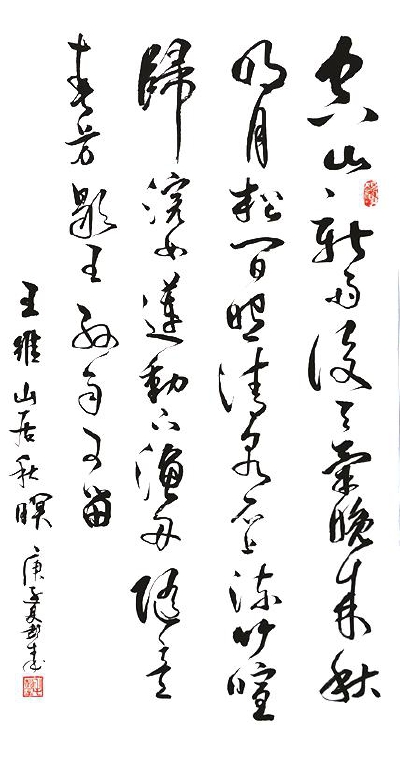 空山新雨後天氣晚來秋
明月松間照清泉石上流竹喧
歸浣女蓮動下漁舟隨意
春芳歇王孫自可留
王維山居秋暝 庚子夏